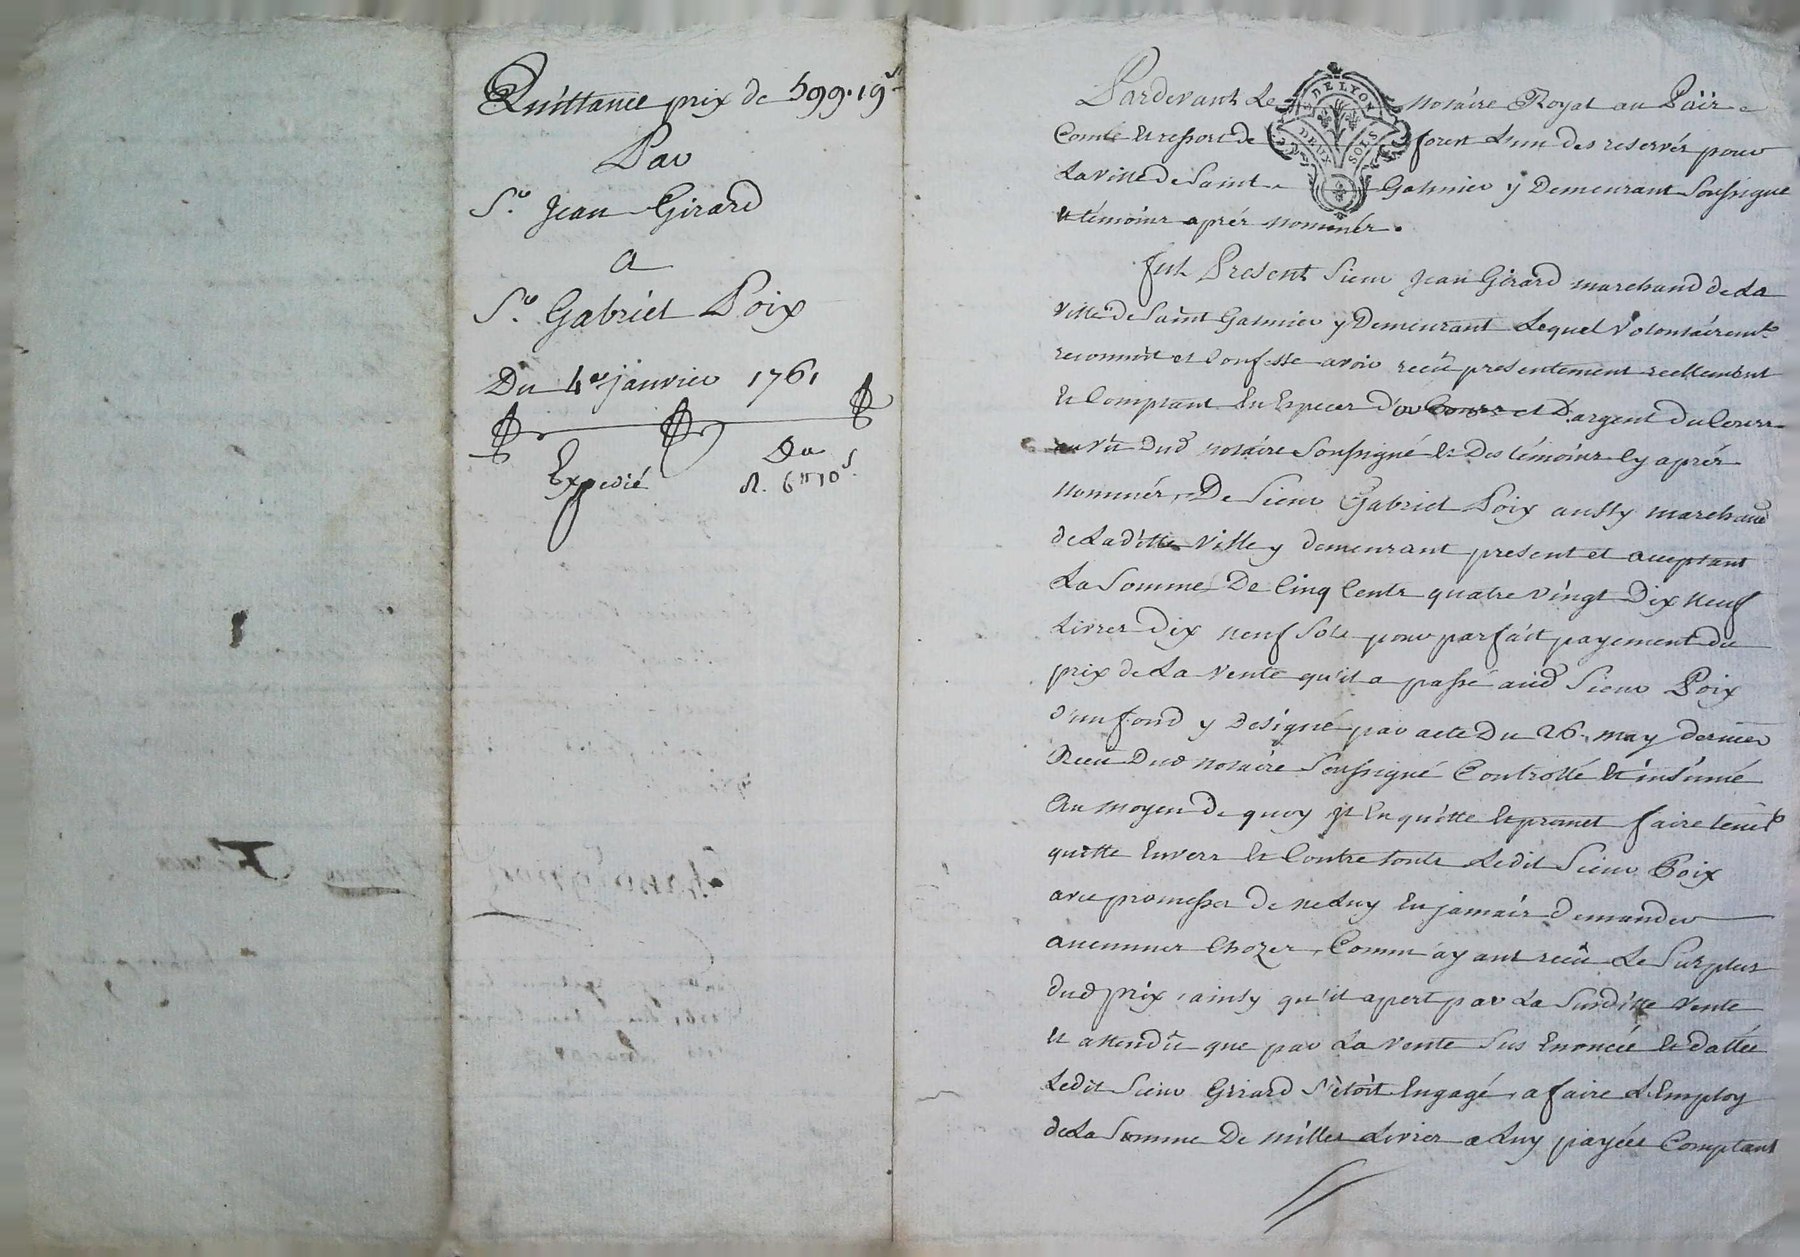 Quittance prix de 599.19s
Par
Sr. Jean Girard
a
Sr. Gabriel Poix
Du 4e janvier 1761
Expedié
Du
R. 6tt 10s.
Pardevant Le notaire Royal au Païs
Comté et ressort de forest L'un des reservés pour
La ville de Saint Galmier y Demeurant Soussigné
et témoins aprés nommés.
DE LYON
DEUX SOLS
fut Present Sieur Jean Girard marchand de La
ville de Saint Galmier y Demeurant Lequel volontairemt
reconnoit et Confesse avoir receu presentement reellement
et Comptant En Especes d'or et D'argent du Cours
au vû Dud notaire Soussigné et Des témoins Cy aprés
nommés, De Sieur Gabriel Poix aussy marchand
de Laditte ville y demeurant present et acceptant
La Somme De Cinq Cents quatre vingt Dix neuf
Livres Dix neuf Sols pour parfait payement du
prix de La vente qu'il a passé aud Sieur Poix
d'un fond y designé par acte Du 26. may dernier
Receu Dud notaire Soussigné Controllé et insinué
Au moyen de quoy il En quitte et promet faire tenir
quitte Envers et Contre touts Ledit Sieur Poix
avec promesses de ne Luy En jamais Demander
aucunnes Chozes, Comm'ayant receu Le Surplus
dud prix, ainsy qu'il apert par La Surditte vente
et attendû que par La vente Sus Enoncée et dattée
Ledit Sieur Girard S'étoit Engagé, a faire L'Employ
de La Somme De milles Livres a Luy payées Comptant